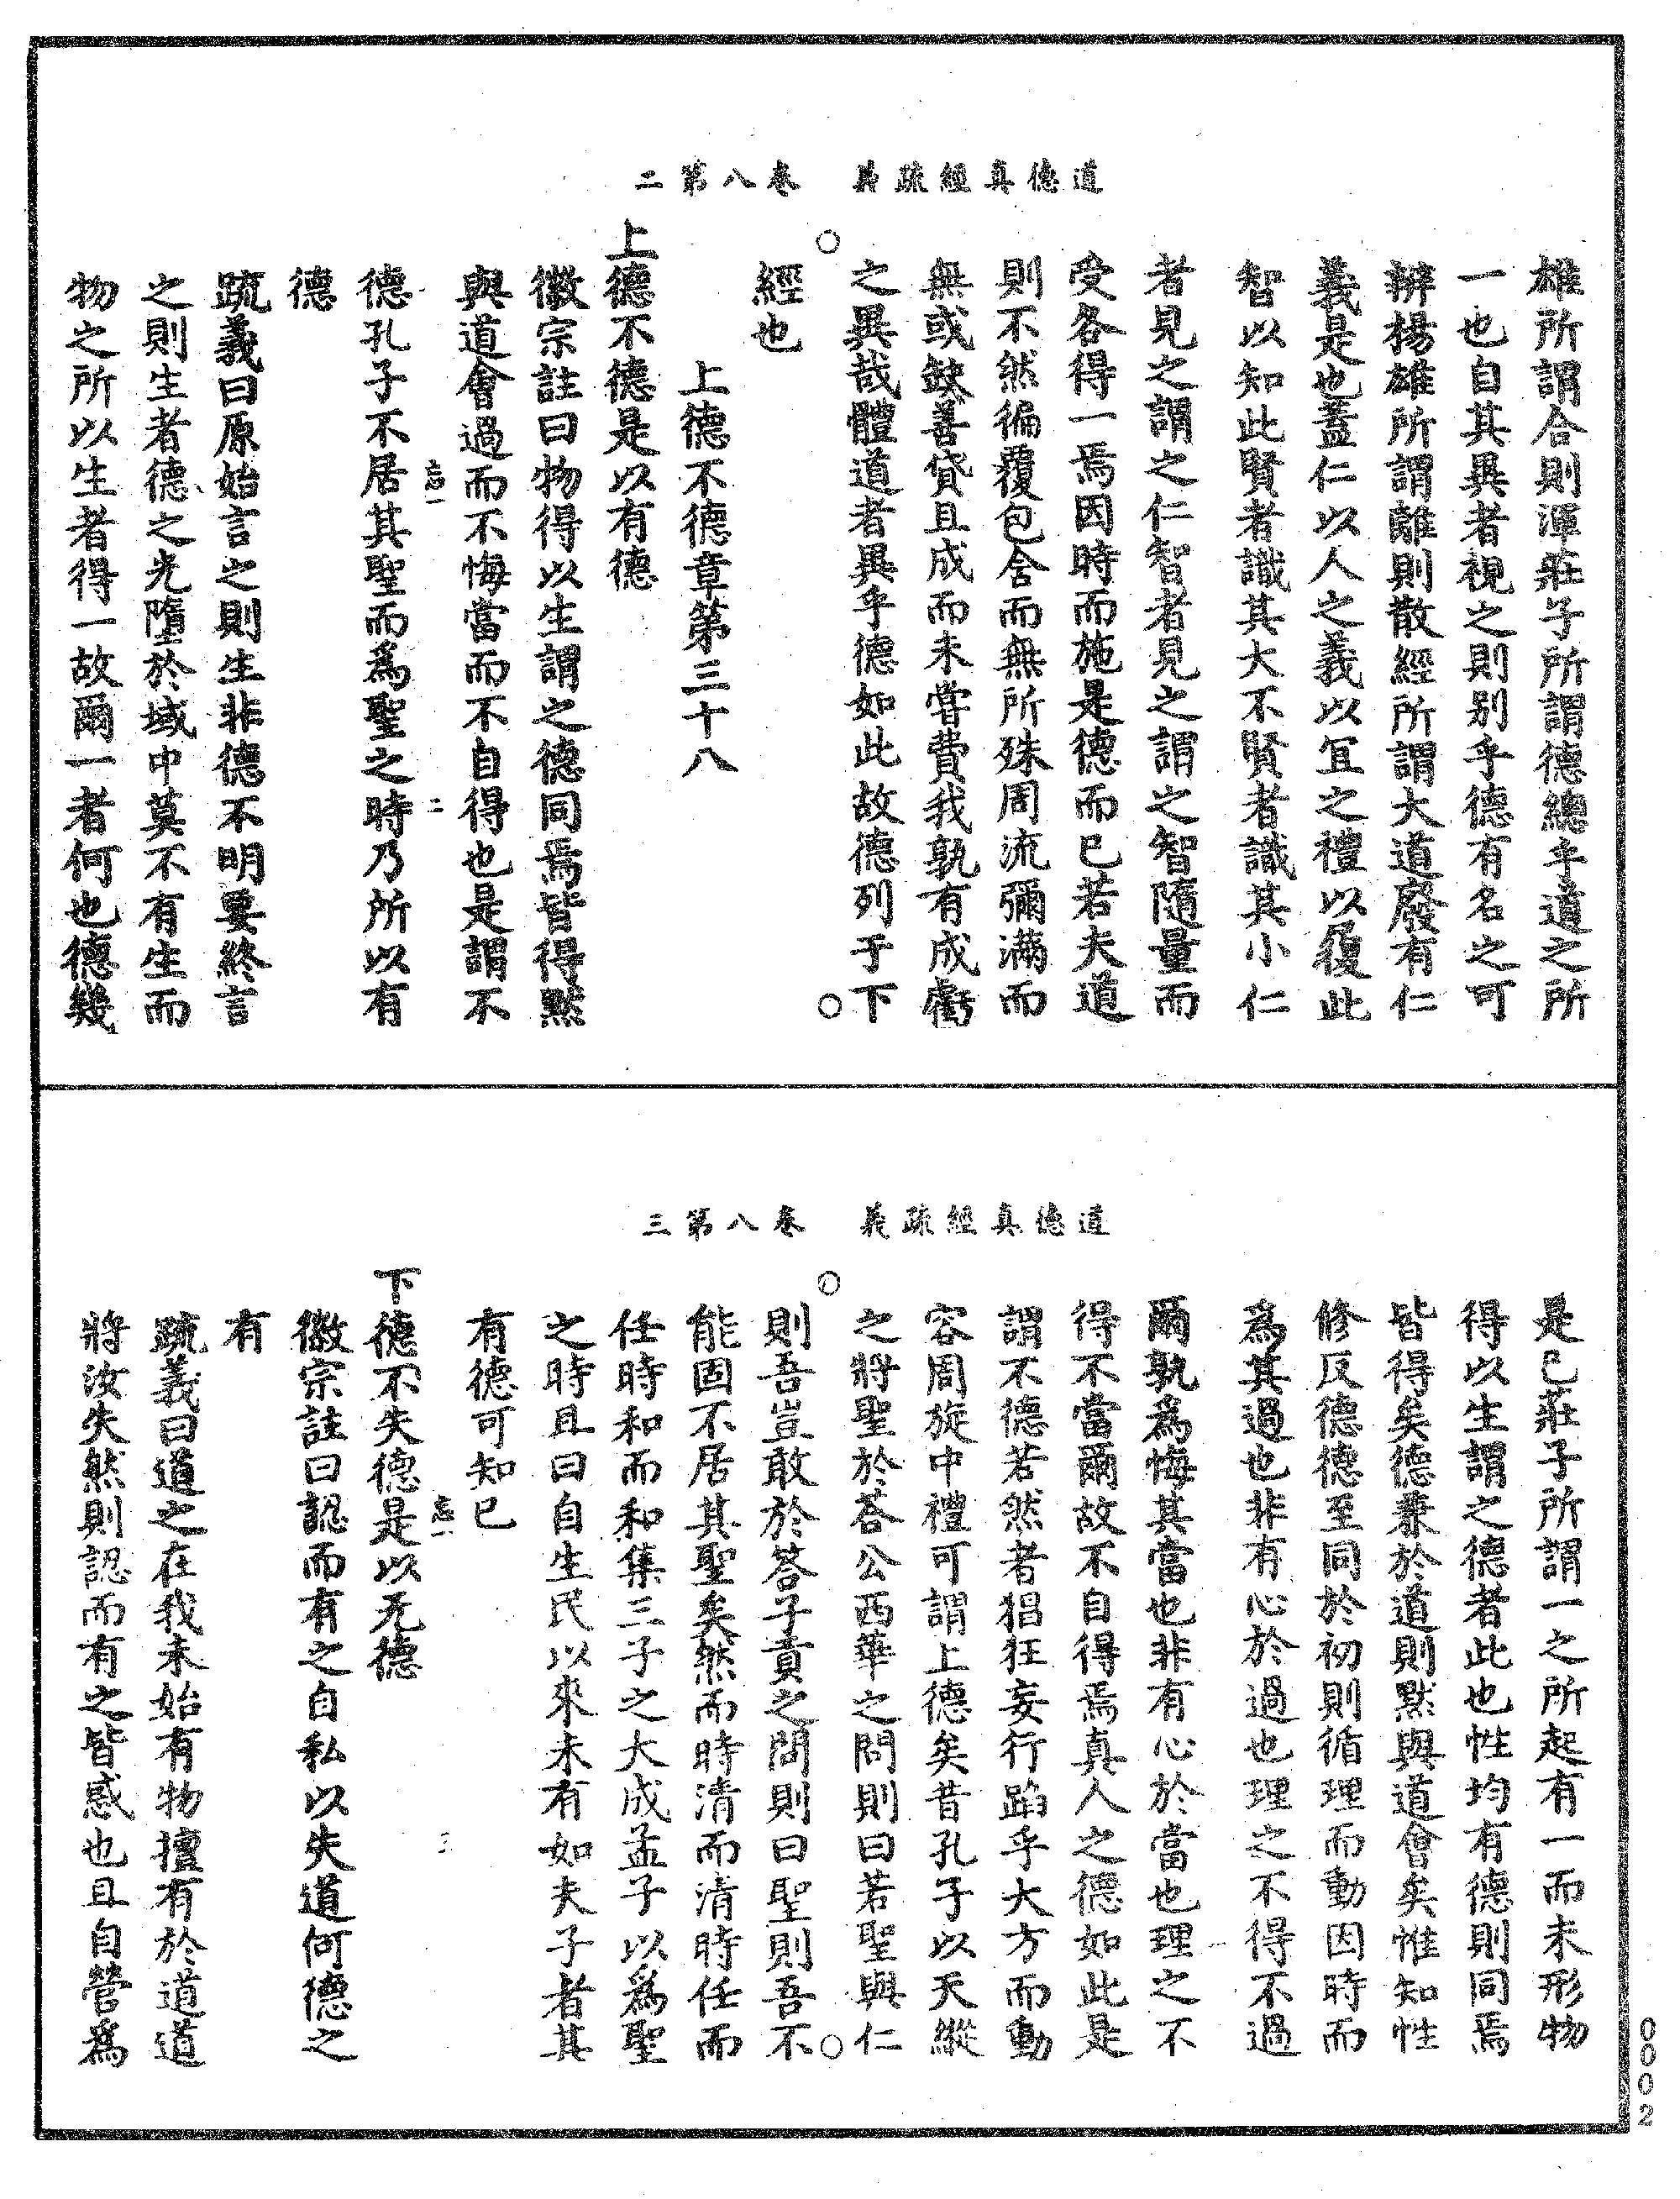 道德真經疏義　卷八第二
雄所謂合則渾莊子所謂德總乎道之所
一也自其異者視之則別乎德有名之可
辨楊雄所謂離則散經所謂大道廢有仁
義是也蓋仁以人之義以宜之禮以履此
智以知此賢者識其大不賢者識其小仁
者見之謂之仁智者見之謂之智隨量而
受各得一焉因時而施是德而已若夫道
則不然徧覆包含而無所殊周流彌滿而
無或缺善貸且成而未嘗費我孰有成虧
之異哉體道者異乎德如此故德列于下
經也
上德不德章第三十八
上德不德是以有德
徽宗註曰物得以生謂之德同焉皆得默
與道會過而不悔當而不自得也是謂不
忘一　二
德孔子不居其聖而為聖之時乃所以有
德
疏義曰原始言之則生非德不明要終言
之則生者德之光墮於域中莫不有生而
物之所以生者得一故爾一者何也德幾
道德真經疏義　卷八第三
是已莊子所謂一之所起有一而未形物
得以生謂之德者此也性均有德則同焉
皆得矣德兼於道則默與道會矣惟知性
修反德德至同於初則循理而動因時而
為其過也非有心於過也理之不得不過
爾孰為悔其當也非有心於當也理之不
得不當爾故不自得焉真人之德如此是
謂不德若然者猖狂妄行蹈乎大方而動
容周旋中禮可謂上德矣昔孔子以天縱
之將聖於荅公西華之問則曰若聖與仁
則吾豈敢於答子貢之問則曰聖則吾不
能固不居其聖矣然而時清而清時任而
任時和而和集三子之大成孟子以為聖
之時且曰自生民以來未有如夫子者其
有德可知已
忘一　三
下德不失德是以无德
徽宗註曰認而有之自私以失道何德之
有
疏義曰道之在我未始有物擅有於道道
將汝失然則認而有之皆惑也且自營為
0002